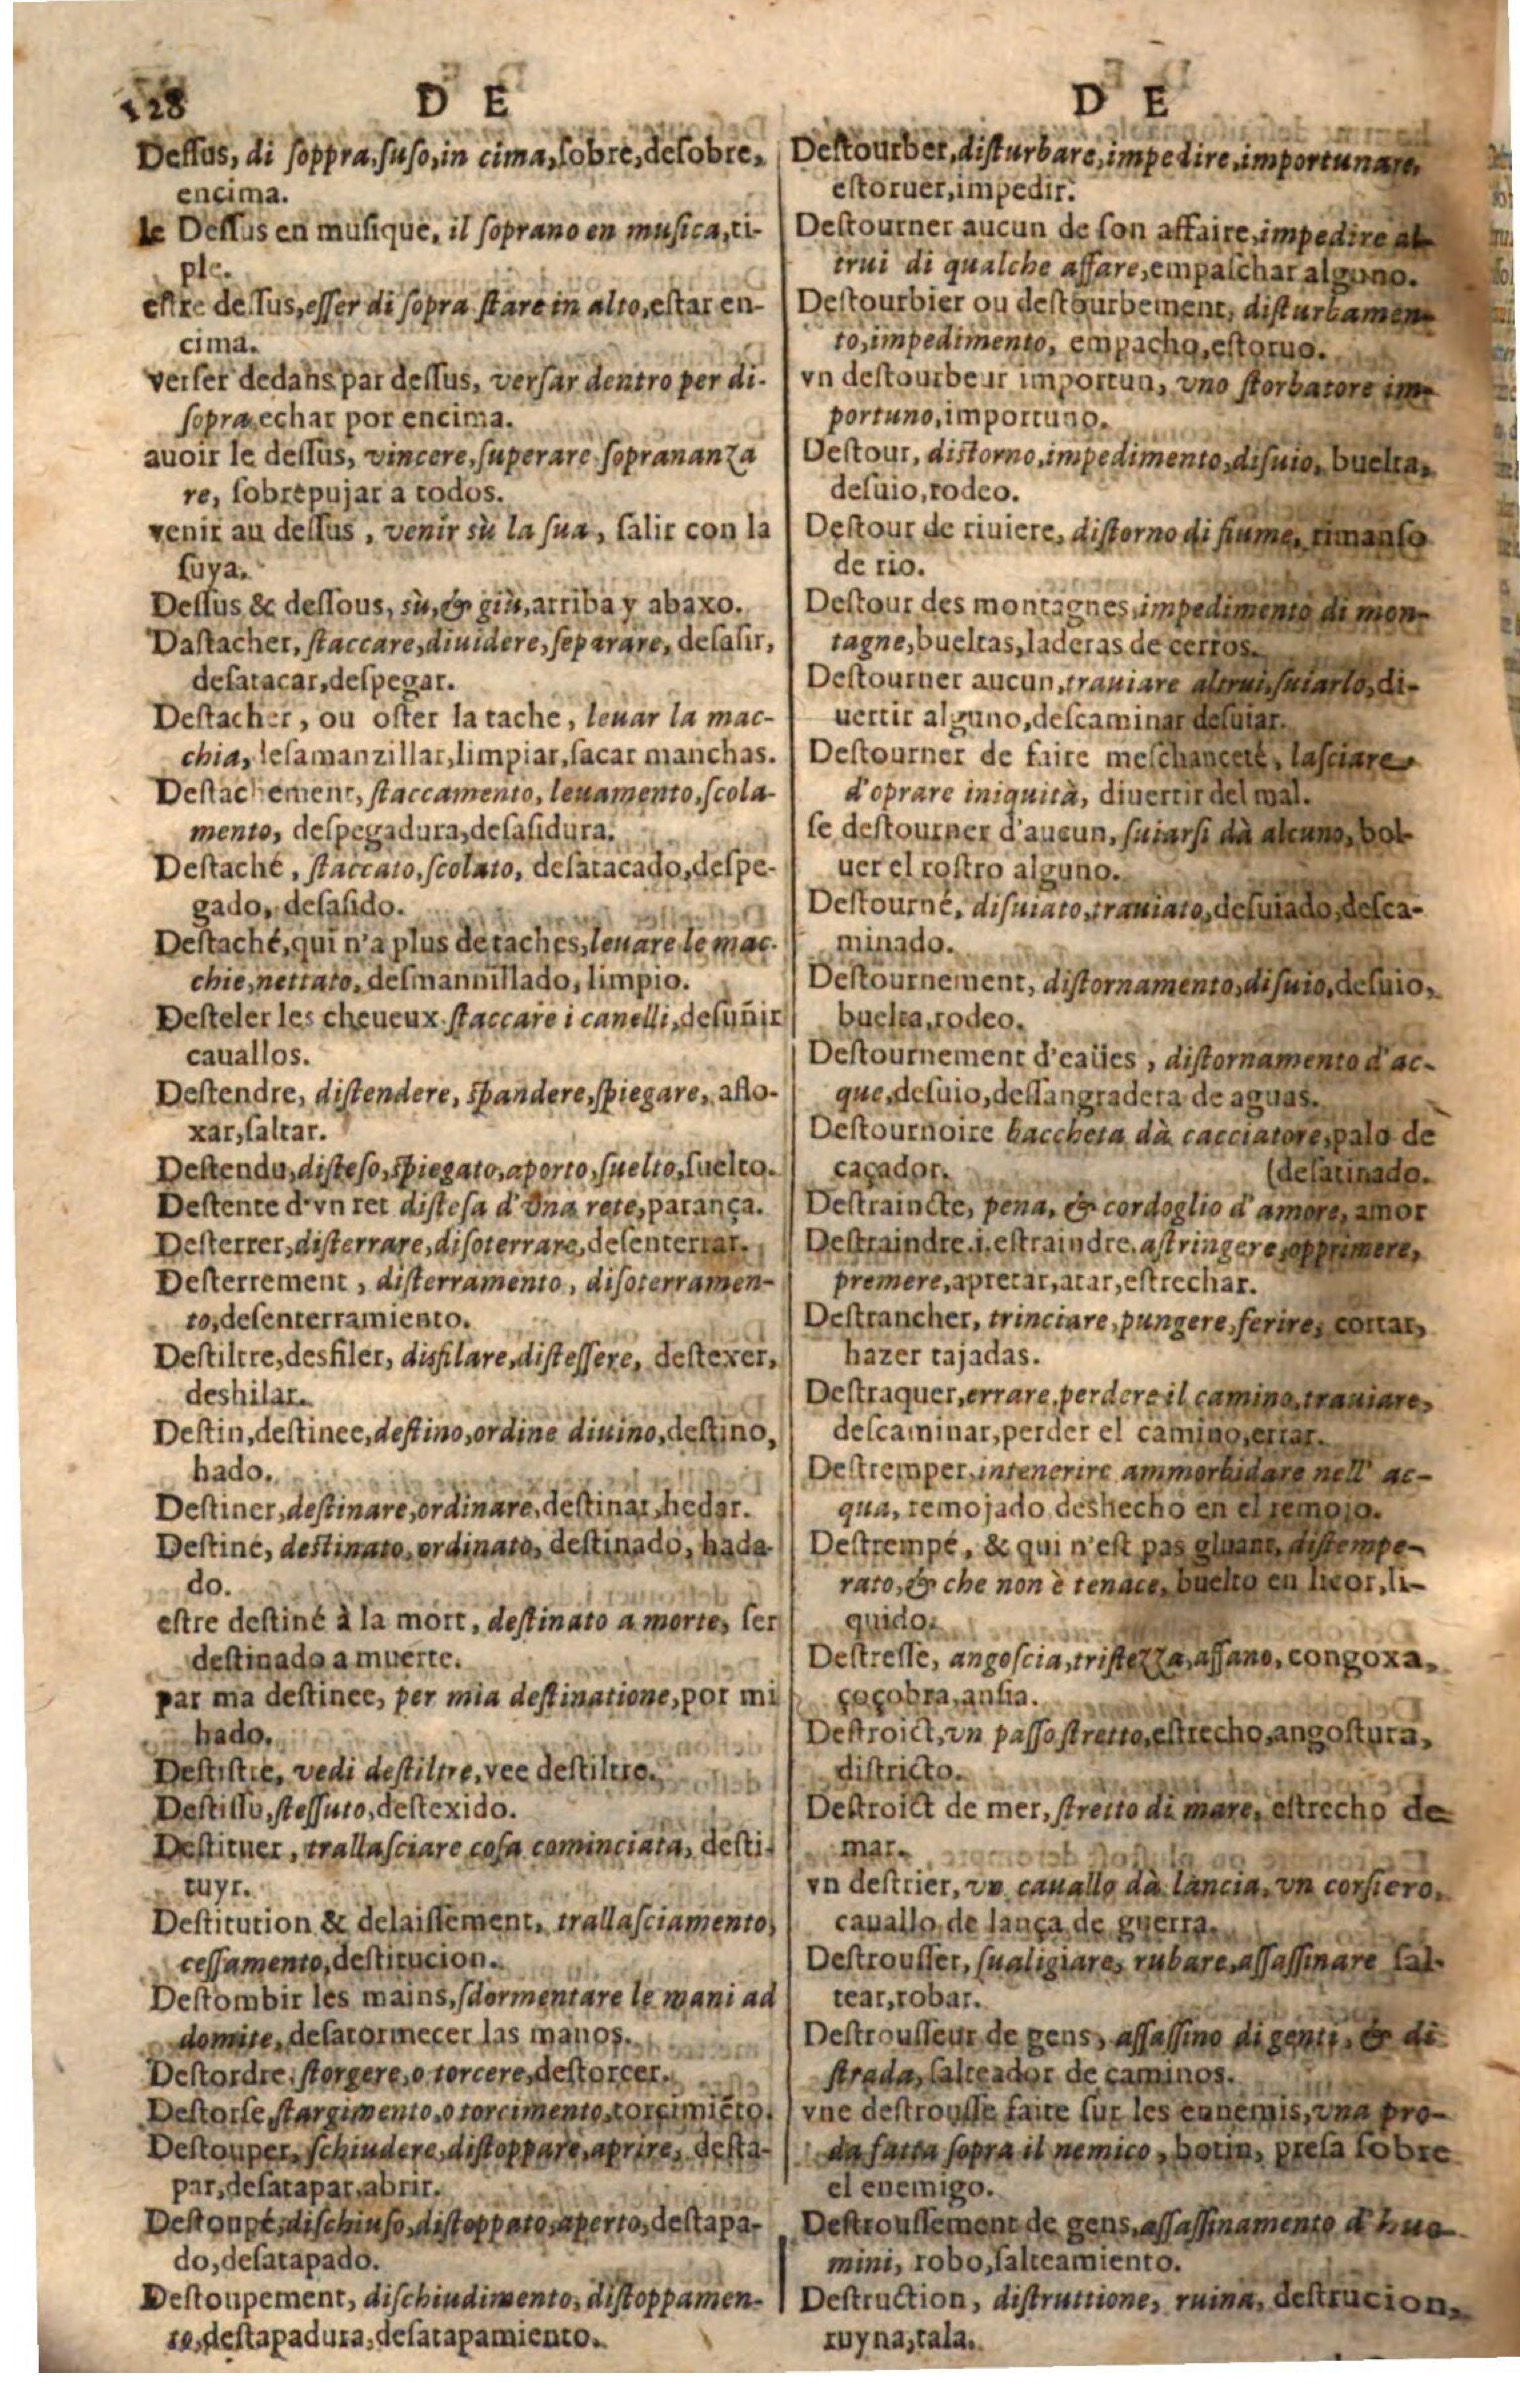 128 D E
Dessus, di soppra, suso, in cima, sobre, desobre,
encima.
le Dessus en musique, il soprano en musica, ti-
ple.
estre dessus, esser di sopra stare in alto, estar en-
cima.
verser dedans par dessus, versar dentro per di-
sopra, echar por encima.
auoir le dessus, vincere, superare soprananza
re, sobrepujar a todos.
venir au dessus, venir sù la sua, salir con la
suya.
Dessus & dessous, sù, & giù, arriba y abaxo.
Dastacher, staccare, diuidere, separare, desasir,
desatacar, despegar.
Destacher, ou oster la tache, leuar la mac-
chia, desamanzillar, limpiar, sacar manchas.
Destachement, staccamento, leuamento, scola-
mento, despegadura, desasidura.
Destaché, staccato, scolato, desatacado, despe-
gado, desasido.
Destaché, qui n'a plus de taches, leuare le mac-
chie, nettato, desmannillado, limpio.
Desteler les cheueux staccare i canelli, desuñir
cauallos.
Destendre, distendere, spandere, spiegare, aflo-
xar, saltar.
Destendu, disteso, spiegato, aporto, suelto, suelto.
Destente d'vn ret distesa d'vna rete, parança.
Desterrer, disterrare, disoterrare, desenterrar.
Desterrement, disterramento, disoterramen-
to, desenterramiento.
Destiltre, desfiler, disfilare, distessere, destexer,
deshilar.
Destin, destinee, destino, ordine diuino, destino,
hado.
Destiner, destinare, ordinare, destinar, hedar.
Destiné, destinato, ordinato, destinado, hada-
do.
estre destiné à la mort, destinato a morte, ser
destinado a muerte.
par ma destinee, per mia destinatione, por mi
hado.
Destistre, vedi destiltre, vee destiltre.
Destissu, stessuto, destexido.
Destituer, trallasciare cosa cominciata, desti-
tuyr.
Destitution & delaissement, trallasciamento,
cessamento, destitucion.
Destombir les mains, sdormentare le mani ad
domite, desatormecer las manos.
Destordre, storgere, o torcere, destorcer.
Destorse, stargimento, o torcimento, torcimiẽto.
Destouper, schiudere, distoppare, aprire, desta-
par, desatapar, abrir.
Destoupé, dischiuso, distoppato, aperto, destapa-
do, desatapado.
Destoupement, dischiudimento, distoppamen-
to, destapadura, desatapamiento.
D E
Destourber, disturbare, impedire, importunare,
estoruer, impedir.
Destourner aucun de son affaire, impedire al-
trui di qualche affare, empaschar alguno.
Destourbier ou destourbement, disturbamen-
to, impedimento, empacho, estoruo.
vn destourbeur importun, vno storbatore im-
portuno, importuno.
Destour, distorno, impedimento, disuio, buelta,
desuio, rodeo.
Destour de riuiere, distorno di fiume, rimanso
de rio.
Destour des montagnes, impedimento di mon-
tagne, bueltas, laderas de cerros.
Destourner aucun, trauiare altrui, suiarlo, di-
uertir alguno, descaminar desuiar.
Destourner de faire meschanceté, lasciare
d'oprare iniquità, diuertir del mal.
se destourner d'aucun, suiarsi dà alcuno, bol-
uer el rostro alguno.
Destourné, disuiato, trauiato, desuiado, desca-
minado.
Destournement, distornamento, disuio, desuio,
buelta, rodeo.
Destournement d'eaües, distornamento d'ac-
que, desuio, dessangradera de aguas.
Destournoire baccheta dà cacciatore, palo de
caçador. (desatinado.
Destraincte, pena, & cordoglio d'amore, amor
Destraindre. i. estraindre. astringere, opprimere,
premere, apretar, atar, estrechar.
Destrancher, trinciare, pungere, ferire, cortar,
hazer tajadas.
Destraquer, errare, perdere il camino, trauiare,
descaminar, perder el camino, errar.
Destremper, intenerire ammorbidare nell' ac-
qua, remojado, deshecho en el remojo.
Destrempé, & qui n'est pas gluant, distempe-
rato, & che non è tenace, buelto en licor, li-
quido.
Destresse, angoscia, tristezza, affano, congoxa,
çoçobra, ansia.
Destroict, vn passo stretto, estrecho, angostura,
districto.
Destroict de mer, stretto di mare, estrecho de
mar.
vn destrier, vn cauallo dà lancia, vn corsiero,
cauallo de lança de guerra.
Destrousser, sualigiare, rubare, assassinare sal-
tear, robar.
Destrousseur de gens, assassino di genti, & di
strada, salteador de caminos.
vne destrousse faite sur les ennemis, vna pro-
da fatta sopra il nemico, botin, presa sobre
el enemigo.
Destroussement de gens, assassinamento d'huo-
mini, robo, salteamiento.
Destruction, distruttione, ruina, destrucion,
ruyna, tala.